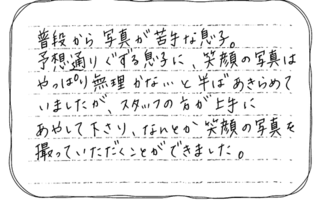 普段から写真が苦手な息子。
予想通りぐずる息子に、笑顔の写真は
やっぱり無理かなぃと半ばあきらめて
いましたが、スタッフの方が上手に
あやして下さり、なんとか笑顔の写真を
撮っていただくことができました。